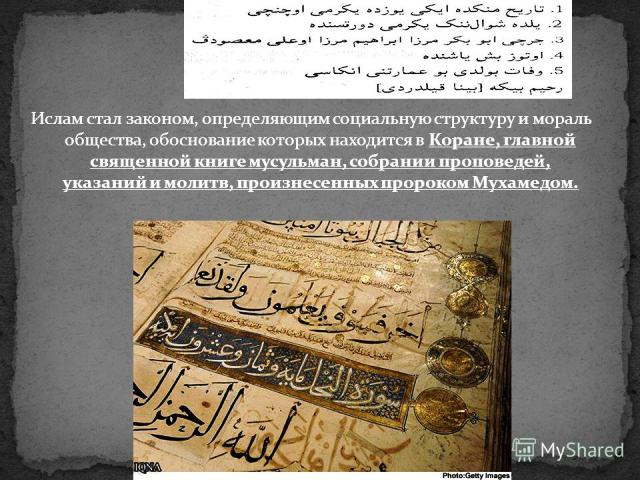 1. تاریخ منکده ایکی یوزده یکرمی اوچنچی
2. یلده شوال‌ننک یکرمی دورتسنده
3. جرچی ابو بکر مرزا ابراهیم مرزا اوعلی معصودݢ
4. اوتوز بش یاشنده
5. وفات بولدی بو عمارتنی انکاسی
رحیم بیکه [بینا قیلدردی]
Ислам стал законом, определяющим социальную структуру и мораль
общества, обоснование которых находится в Коране, главной
священной книге мусульман, собрании проповедей,
указаний и молитв, произнесенных пророком Мухамедом.
اخر فسوف يعلمون ولقد نعلم
سورة النحل مائة وثمان وعشرون آية
الله الرحمن
IQNA
Photo:Getty Images
MyShared